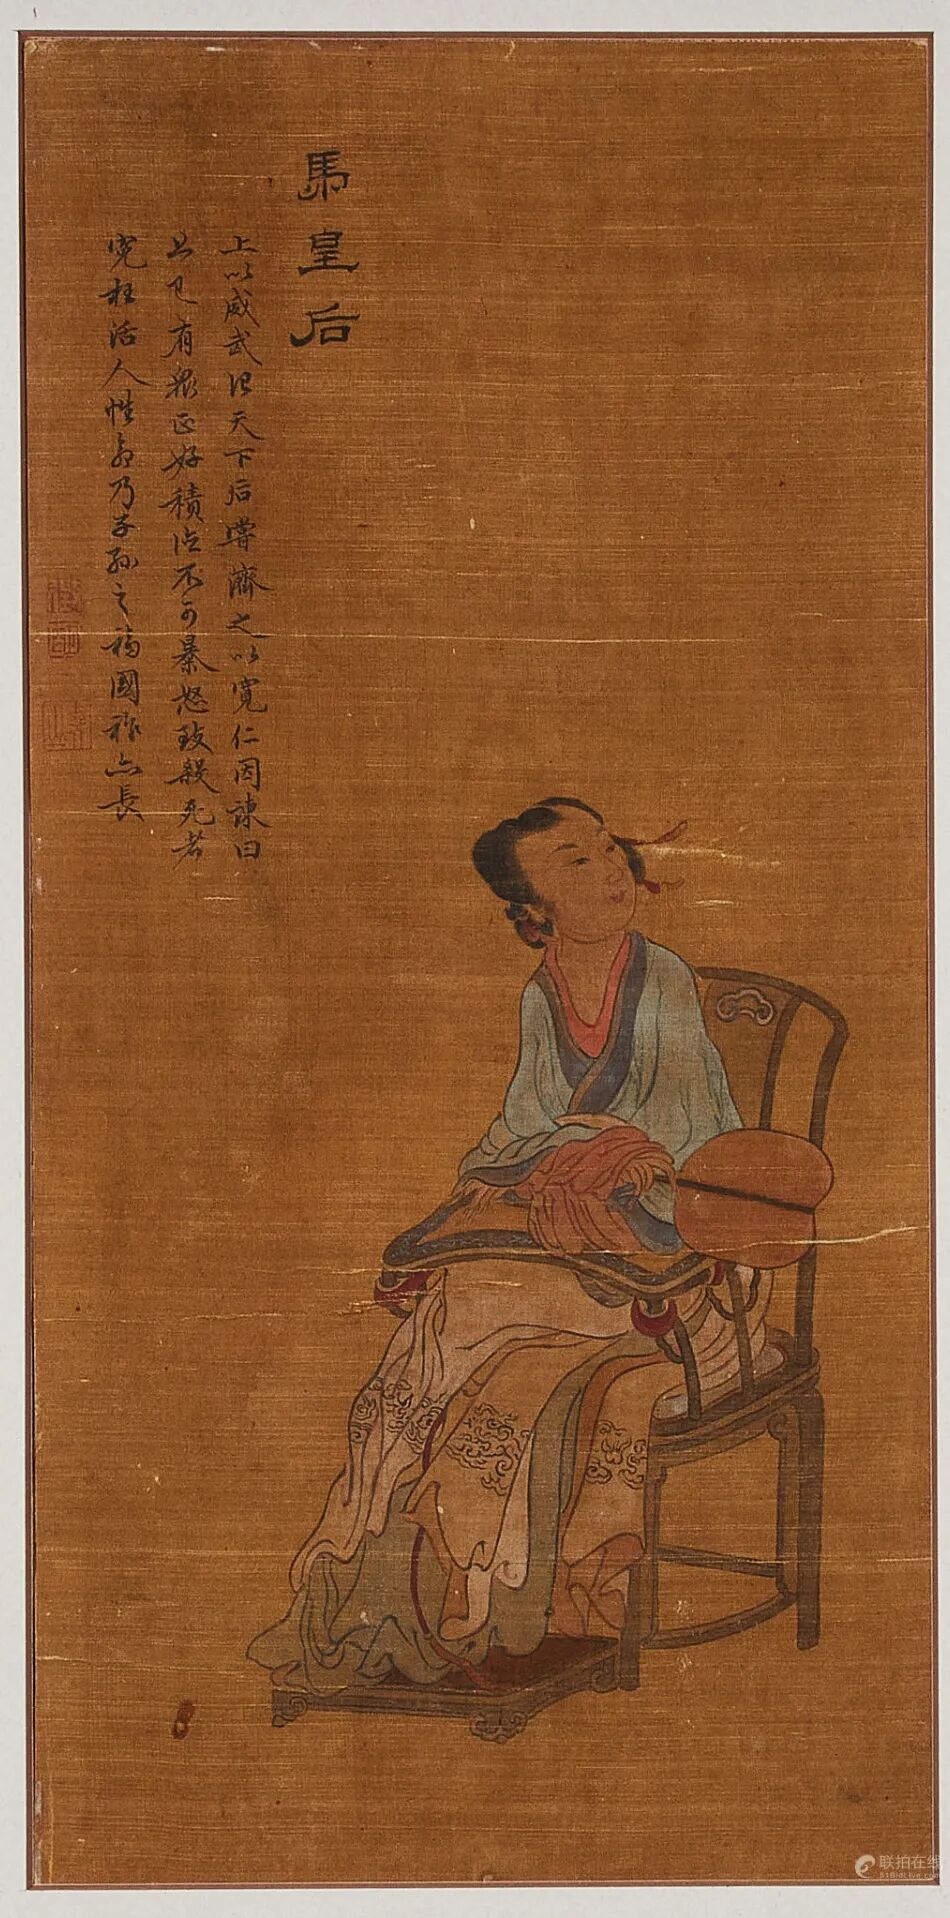 馬皇后
上以威武治天下后嘗濟之以寬仁因諫曰
有眾正好積德不可暴怒致殺死者
冤枉活人性命乃子孫之福國祚亦長
联拍在线
51bidlive.com